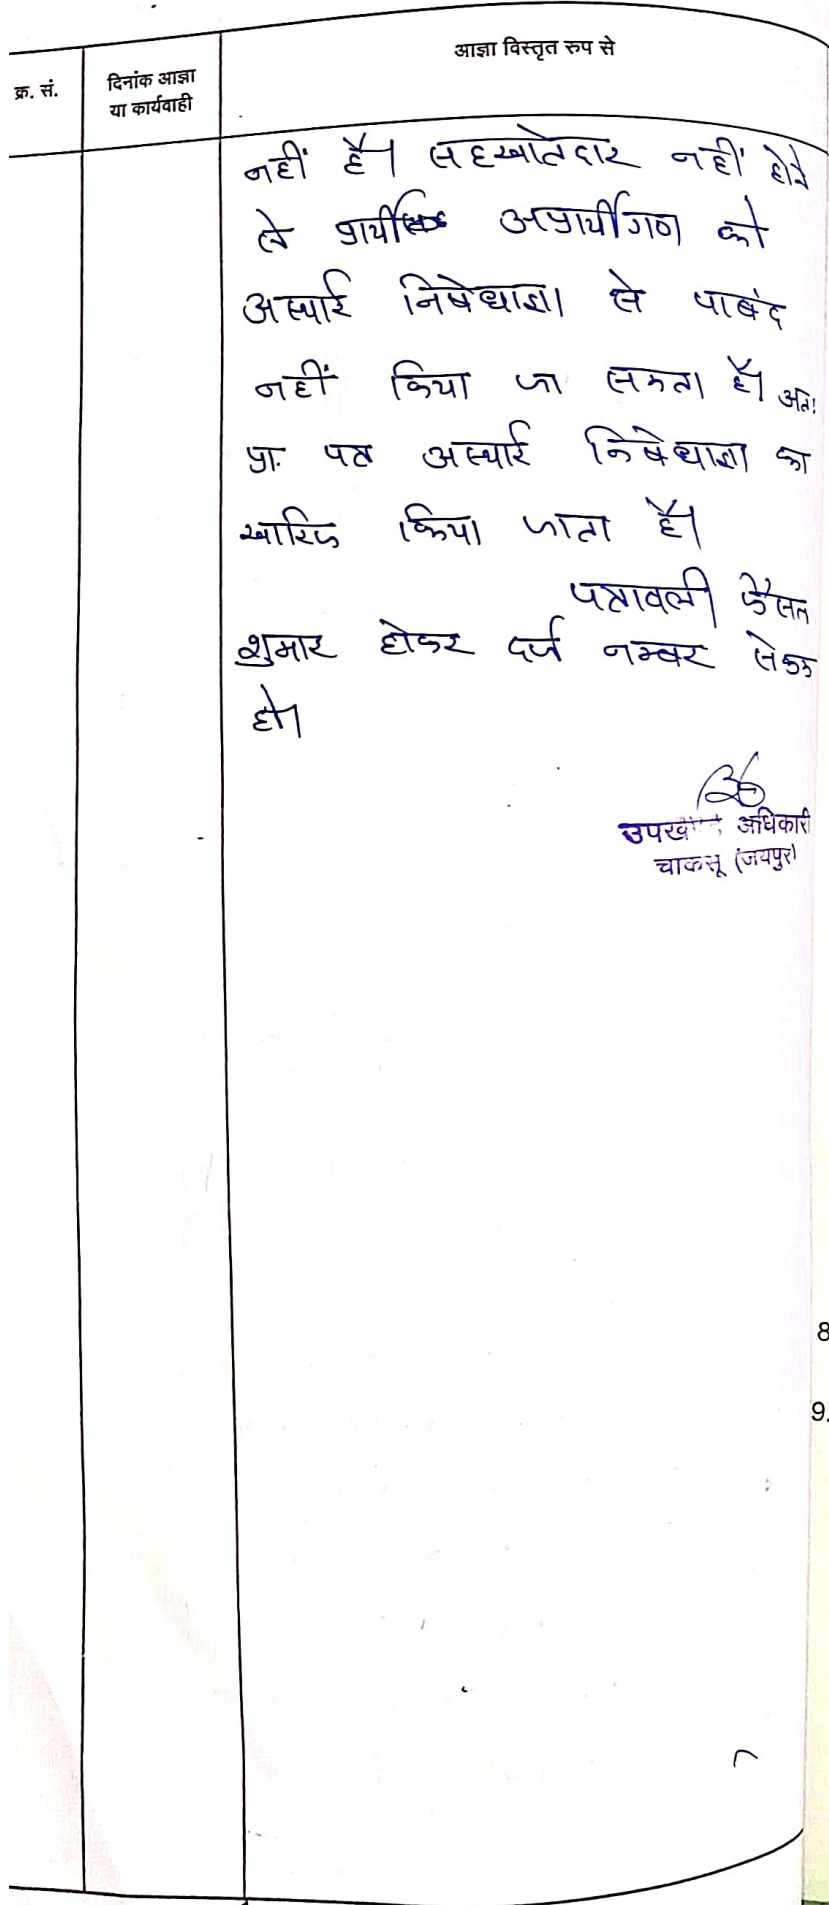 क्र. सं.
दिनांक आज्ञा
या कार्यवाही
आज्ञा विस्तृत रुप से
नहीं है। सहखातेदार नहीं होने
से अप्रार्थीगण को
अस्थाई निषेधाज्ञा से पाबंद
नहीं किया जा सकता है। अतः
प्रा. पत्र अस्थाई निषेधाज्ञा का
खारिज किया जाता है।
पत्रावली फैसल
शुमार होकर दर्ज नम्बर से कम
हो।
उपखण्ड अधिकारी
चाकसू (जयपुर)
8
9.